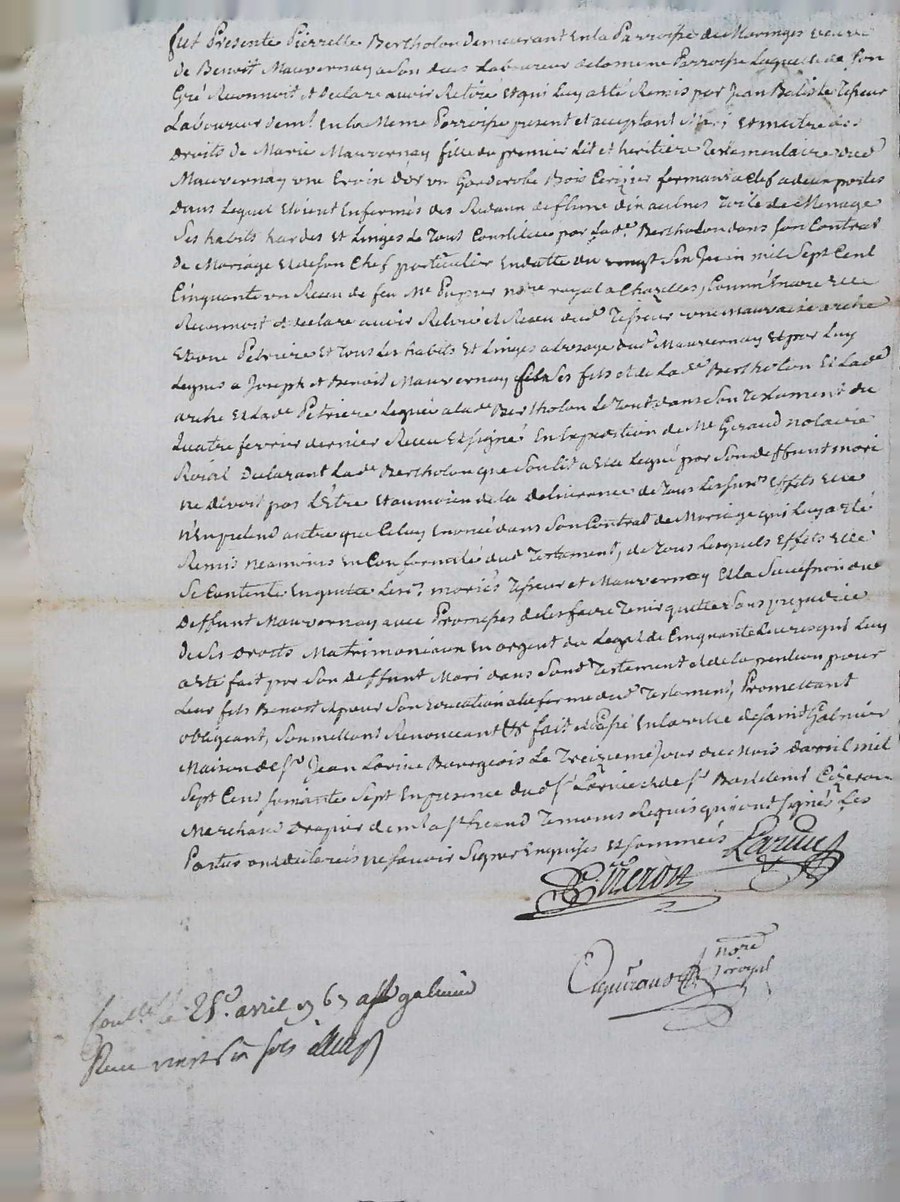 fut Presente Pierrette Bertholon demeurant En la Parroisse de Maringes veuve
de Benoit Mauvernay a Son deces Laboureur de la meme Parroisse Laquelle de Son
Gré Reconnoit et declare avoir Retiré Et qui Luy a eté Remis par Jean Batiste Tisseur
Laboureur demt En la Meme Parroisse present et acceptant Mari, Et maitre des
Droits de Marie Mauvernay fille du premier Lit et heritiere Testamentaire dud
Mauvernay une Croix d'or un Garderobe Bois Cerisier fermant a Clef a deux portes
dans Lequel Etoient Enfermés des Rideaux de filine dix aulnes Toile de Menage
Ses habits hardes Et Linges Le Tout Constitué par Lade Bertholon dans Son Contrat
De Mariage Et de Son Chef particulier En datte du Six Juin mil Sept Cent
Cinquante un Receu de feu Me Pupier nore royal a Chazelles, Comm'Encore Elle
Reconnoit et declare avoir Retiré et Receu dud Tisseur une mauvaise arche
Et une Petriere Et Tous Les habits Et Linges a L'usage dud Mauvernay Et par Luy
Legués a Joseph et Benoit Mauvernay Ses fils et de Lade Bertholon Et Lade
arche Et Lade Petriere Legué a lade Bertholon Le Tout dans Son Testament du
Quatre fevrier dernier Receu Et Signé En Expedition de Me Giraud notaire
Roial Declarant Lade Bertholon que Son lit a Elle Legué par Son deffunt mari
ne devoit pas L'Etre Et au moien de la delivrance de Tous Les Sus Effets Elle
n'En pretend autre que Celuy Enoncé dans Son Contrat de Mariage qui Luy a eté
Remis neamoins En Conformité dud Testament, de Tous Lesquels Effets Elle
Se Contente En quitte Les mariés Tisseur et Mauvernay Et la Succession dud
Deffunt Mauvernay avec Promesses de les faire Tenir quittes Sans prejudice
de Ses Droits Matrimoniaux En argent du Legat de Cinquante Livres qui Luy
a eté fait par Son deffunt Mari dans Sond Testament et de la pention pour
Leur fils Benoit Et pour Son Education a la forme dud Testament, Promettant
obligeant, Soumettant Renonceant &c fait et Passé En la ville de Saint Galmier
Maison de Sr Jean Lavine Bourgeois Le Treizieme Jour du Mois d'avril mil
Sept Cent Soixante Sept En presence dud Sr et de Sr
Marchand Drapier demt a St Temoins Requis qui ont Signé, Les
Parties ont declarées ne Savoir Signer Enquises Et Sommées
nore
royal
le 25e avril 1767 a St galmier
Receu